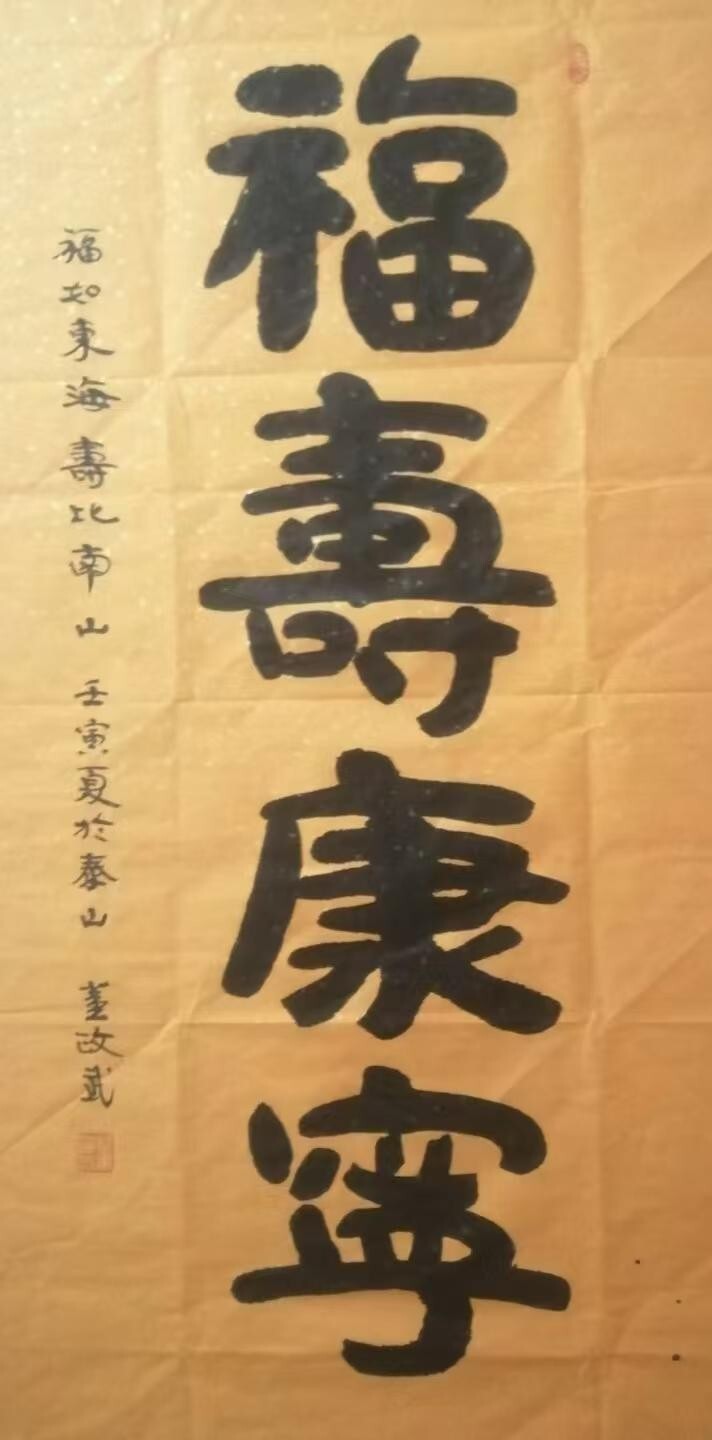 福壽康寧
福如東海壽比南山 壬寅夏於泰山 董政武